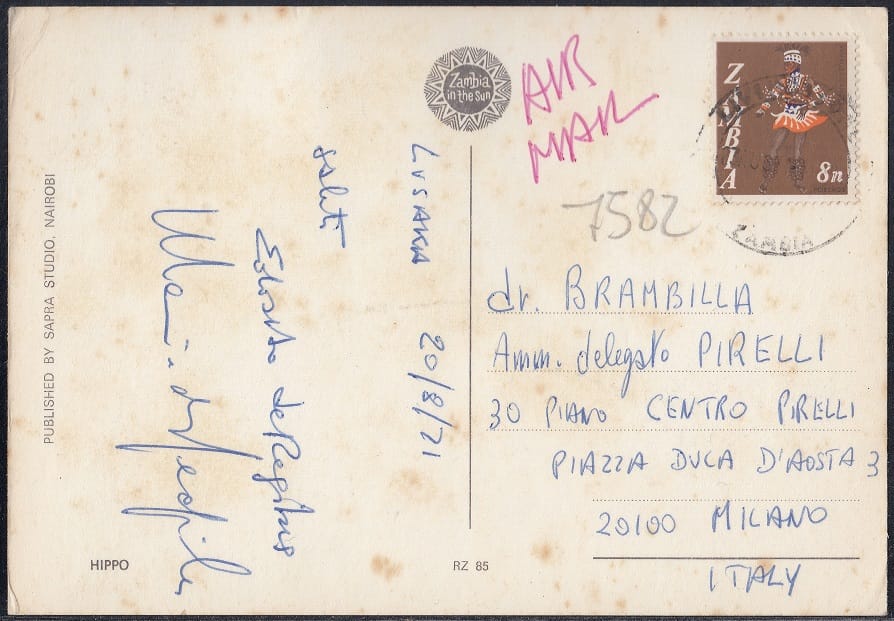 Zambia
in the Sun
AIR
MAIL
ZAMBIA
8n
POSTAGE
ZAMBIA
7582
LUSAKA 20/8/71
saluti
dr. BRAMBILLA
Amm. delegato PIRELLI
30 PIANO CENTRO PIRELLI
PIAZZA DUCA D'AOSTA 3
20100 MILANO
ITALY
PUBLISHED BY SAPRA STUDIO, NAIROBI
HIPPO
RZ 85